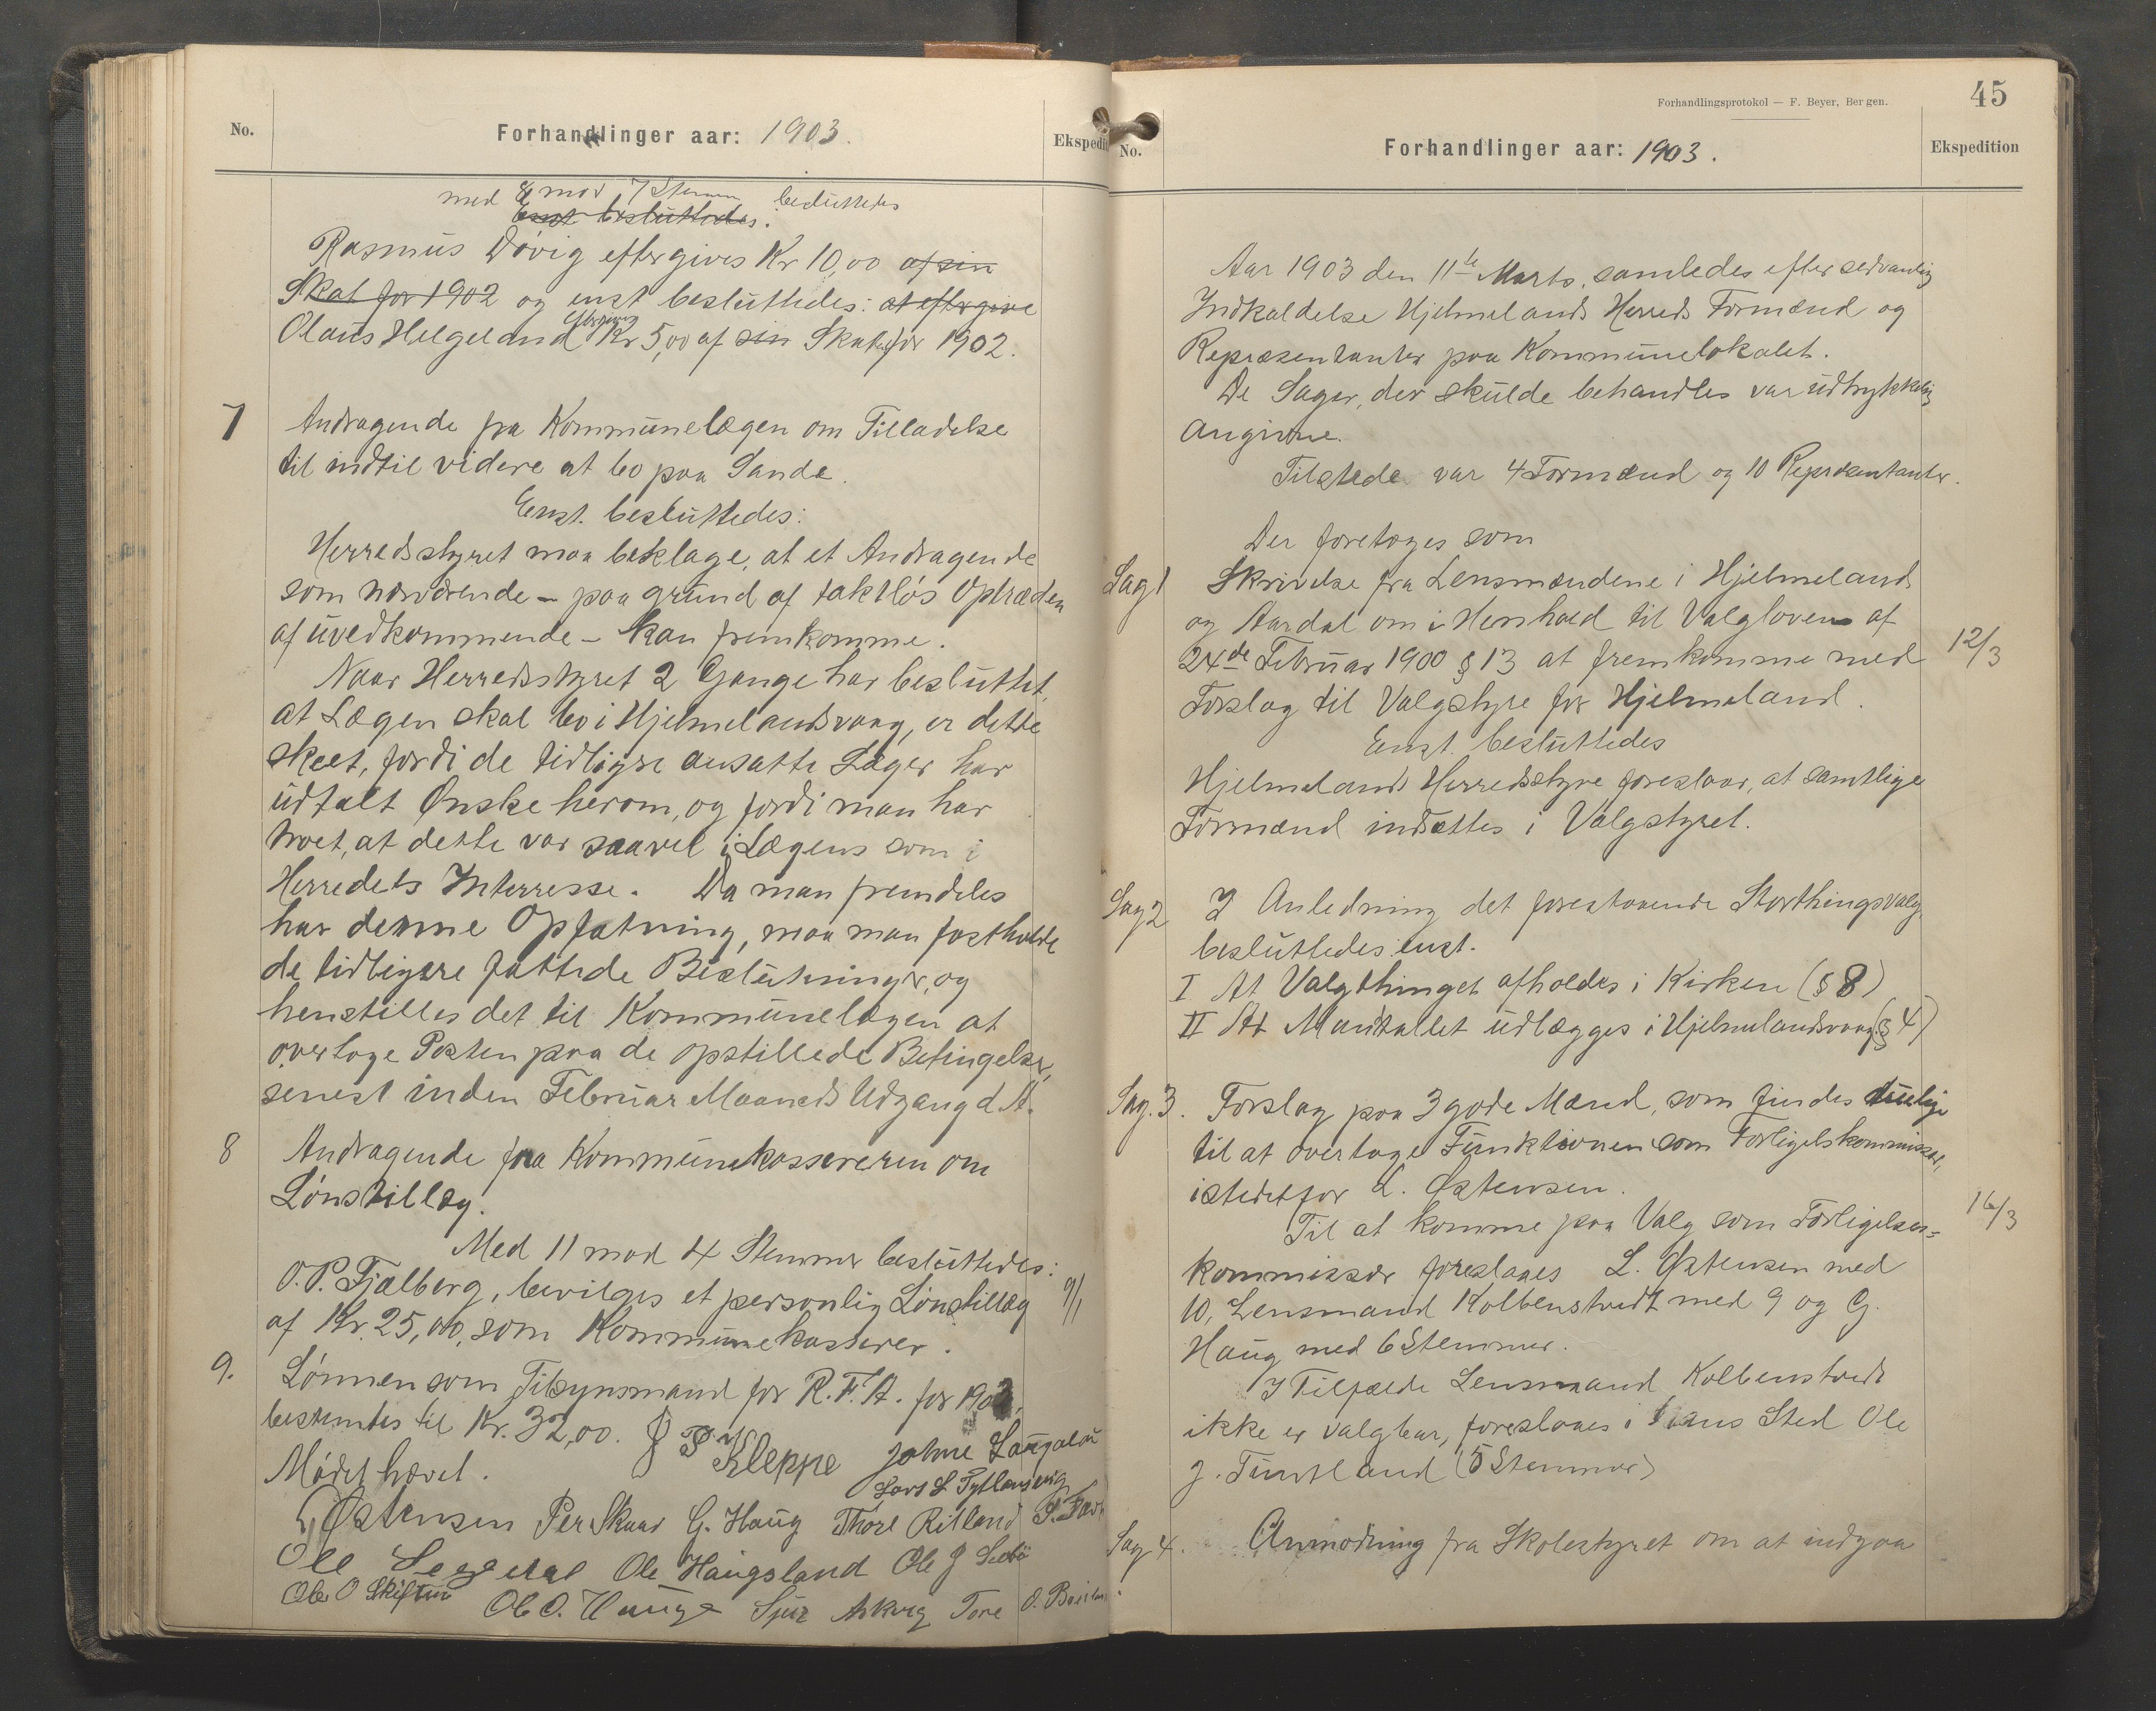 No.
Forhandlinger aar: 1903.
Ekspedit
med 8 mod 7 Stemmer besluttedes
Enst besluttedes:
Rasmus Døvig eftergives Kr 10,00 af sin
Skat for 1902 og enst besluttedes: at eftergive
eftergives
Olaus Helgeland Kr 5,00 af sin Skat for 1902.
7 Andragende fra Kommunelægen om Tilladelse
til indtil videre at bo paa Sande.
Enst. besluttedes:
Herredsstyret maa beklage, at et Andragende
som nærværende – paa grund af taktløs Optræden
af uvedkommende – kan fremkomme.
Naar Herredsstyret 2 Gange har besluttet,
at Lægen skal bo i Hjelmelandsvaag, er dette
skeet, fordi de tidligere ansatte Læger har
udtalt Ønske herom, og fordi man har
troet, at dette var saavel i Lægens som i
Herredets Interresse. Da man fremdeles
har denne Opfatning, maa man fastholde
de tidligere fattede Beslutninger, og
henstilles det til Kommunelægen at
overtage Posten paa de opstillede Betingelser,
senest inden Februar Maaneds Udgang d. A.
8 Andragende fra Kommunekassereren om
Lønstillæg.
Med 11 mod 4 Stemmer besluttedes:
O. P. Fjælberg, bevilges et personlig Lønstillæg
9/1
af Kr. 25,00, som Kommunekasserer.
9. Lønnen som Tilsynsmand for R. F. A. for 1903,
bestemtes til Kr. 32,00.
Mødet hævet.
J T Kleppe Johne Laugaland
Lars L
L Østensen Per Skaar G. Haug Thore Riland
Ole Ole Haugsland Ole J
Ole O Skiftun Ole O. Hauge Sjur Askvig Tore O.
Forhandlingsprotokol — F. Beyer, Bergen.
45
No.
Forhandlinger aar: 1903.
Ekspedition
Aar 1903 den 11te Marts, samledes efter sedvanlig
Indkaldelse Hjelmelands Herreds Formænd og
Repræsentanter paa Kommunelokalet.
De Sager, der skulde behandles var udtrykkelig
angivne.
Tilstede var 4 Formænd og 10 Repræsentanter.
Der foretoges som
Sag 1 Skrivelse fra Lensmændene i Hjelmeland
og Aardal om i Henhold til Valgloven af
24de Februar 1900 § 13 at fremkomme med
12/3
Forslag til Valgstyre for Hjelmeland.
Enst. besluttedes
Hjelmelands Herredsstyre foreslaar, at samtlige
Formænd indsættes i Valgstyret.
Sag 2 I Anledning det forestaaende Storthingsvalg,
besluttedes enst.
I At Valgthinget afholdes i Kirken (§ 8)
II At Mantallet udlægges i Hjelmelandsvaag (§ 4)
Sag. 3. Forslag paa 3 gode Mænd, som findes duelige
til at overtage Funktionen som Forligelskommissær,
istedetfor L. Østensen.
Til at komme paa Valg som Forligelses-
16/3
kommissær foreslaaes L. Østensen med
10, Lensmand Kolbenstvedt med 9 og G.
Haug med 6 Stemmer.
I Tilfælde Lensmand Kolbenstvedt
ikke er valgbar, foreslaaes i hans Sted Ole
J. Tuntland (5 Stemmer)
Sag 4. Anmodning fra Skolestyret om at indgaa